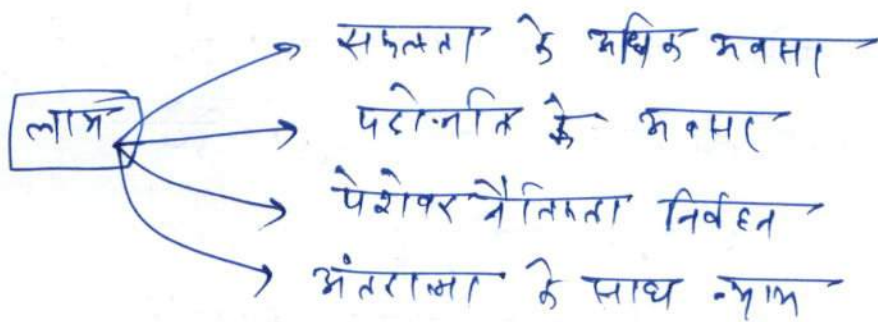 लाभ
सफलता के अधिक अवसर
पदोन्नति के अवसर
पेशेवर नैतिकता निर्वहन
अंतरात्मा के साथ न्याय